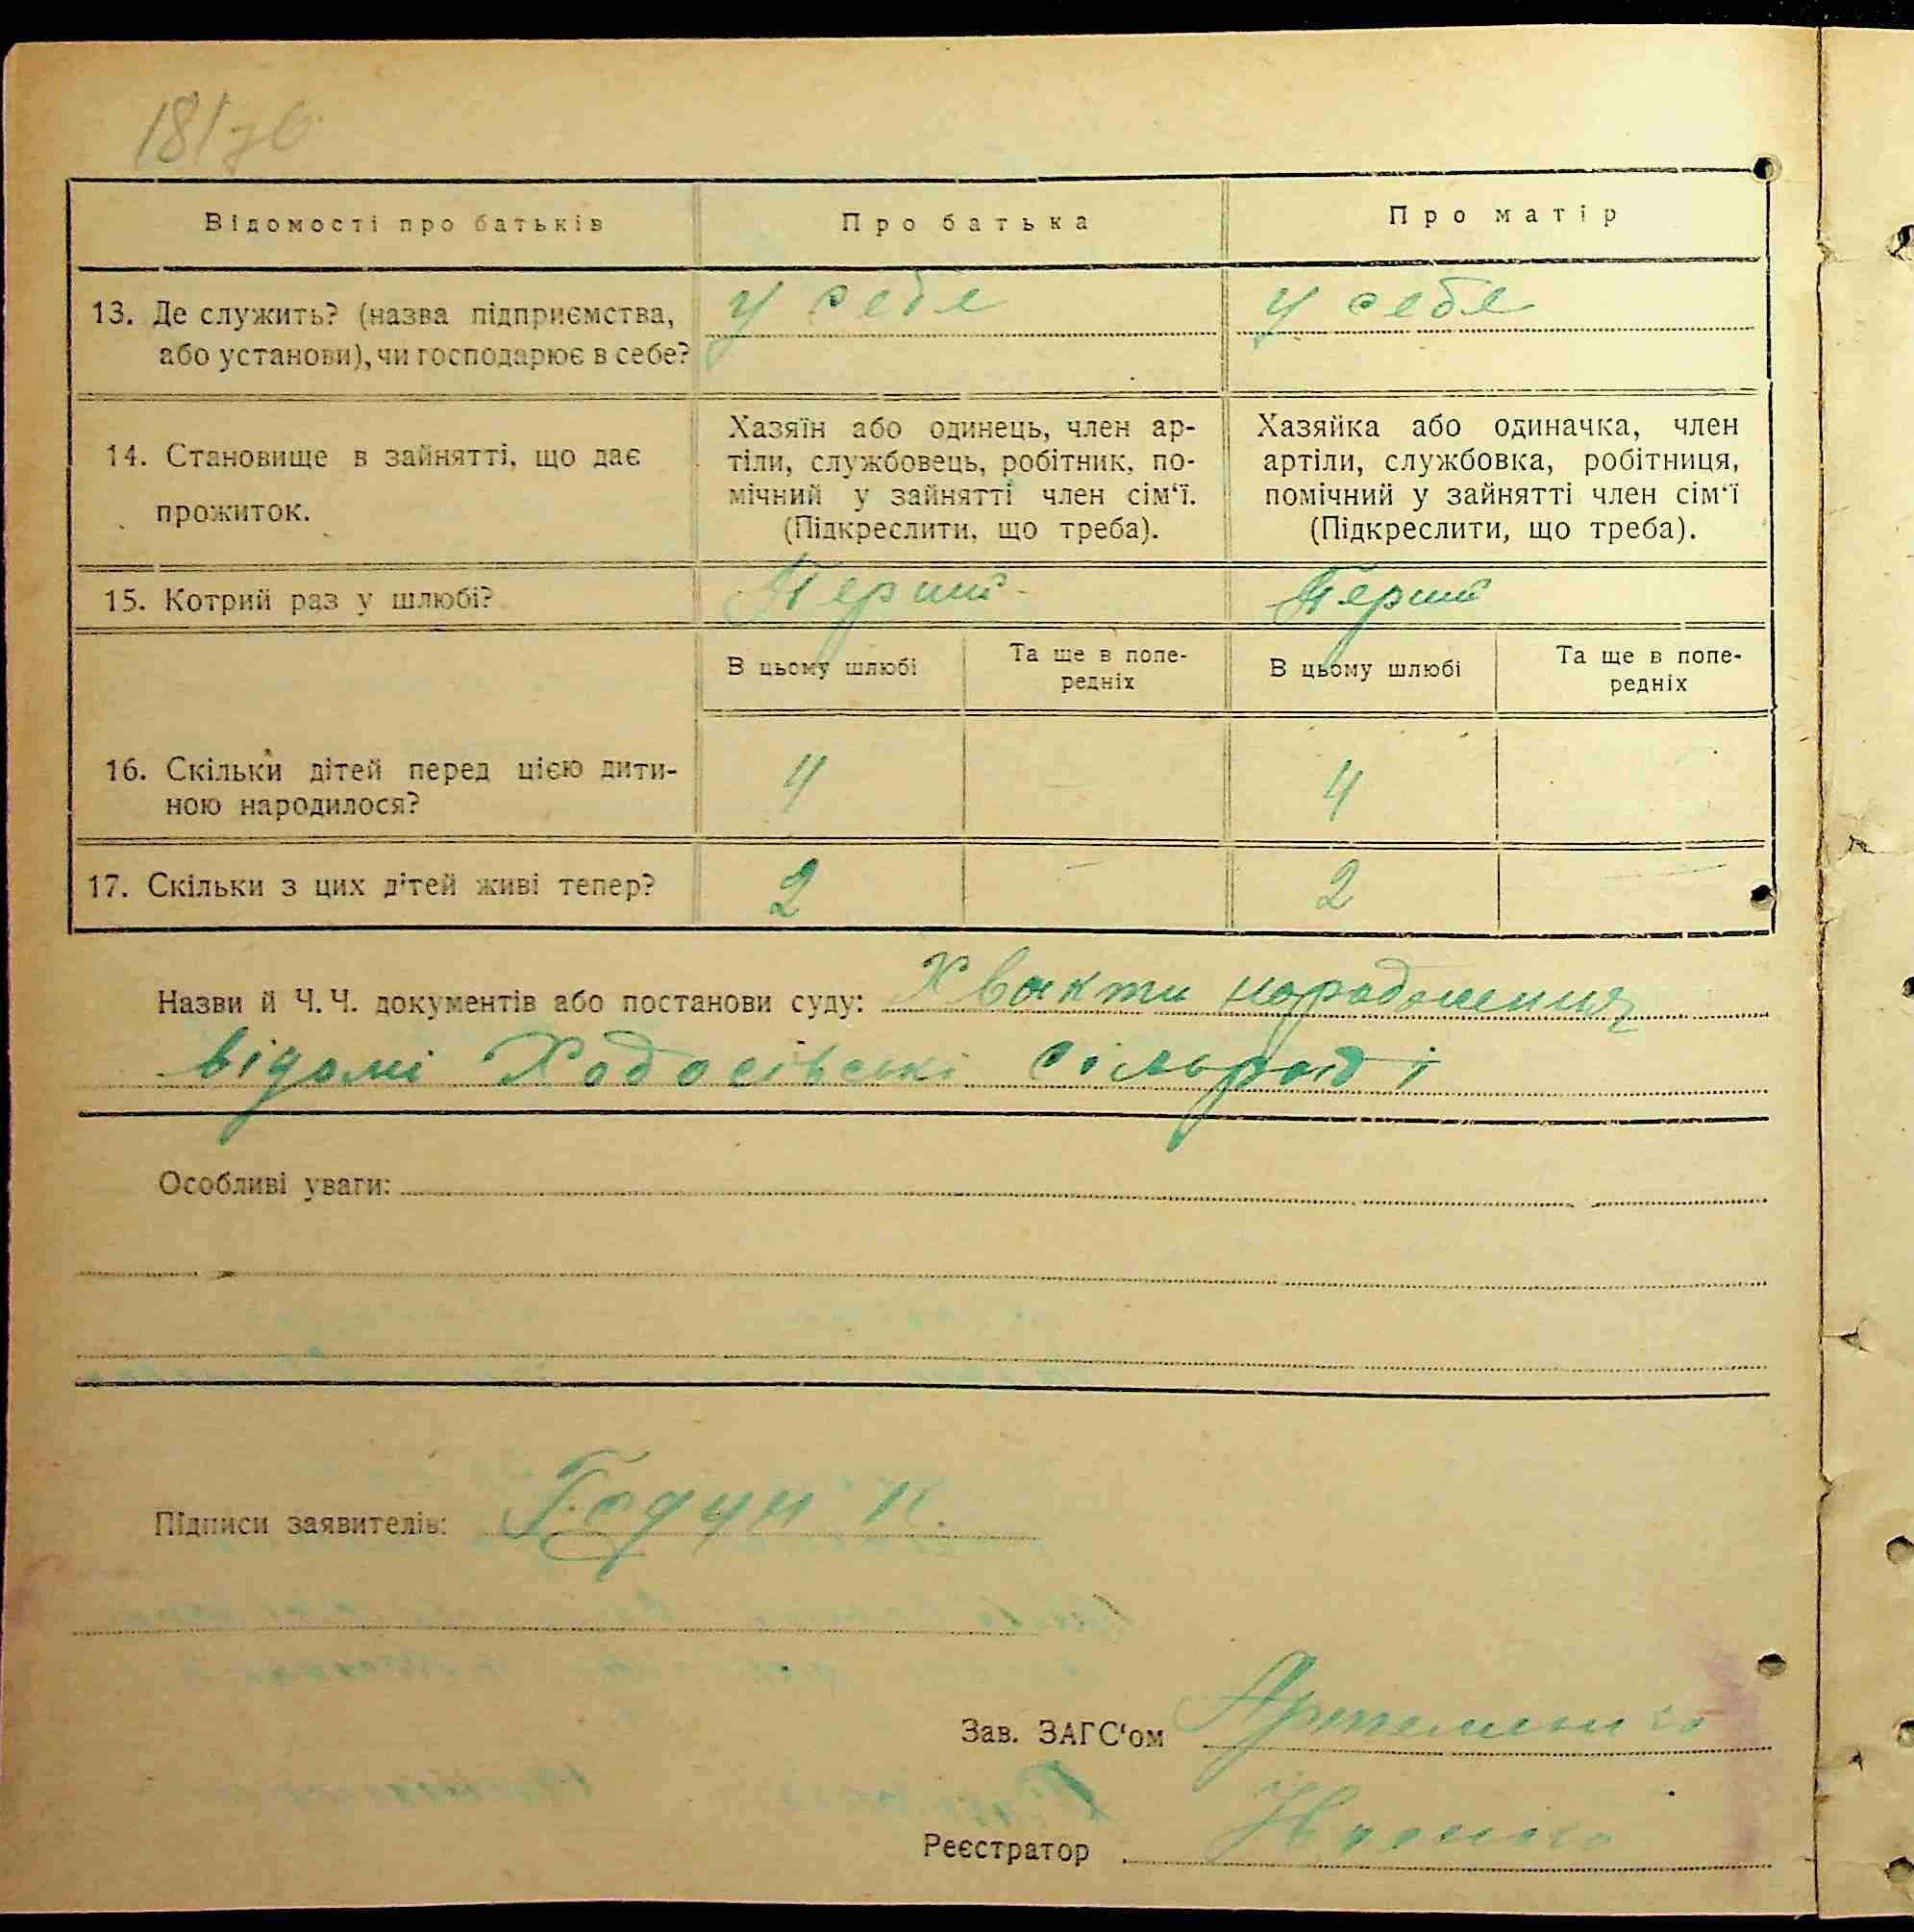 181зв
Відомості про батьків
Про батька
Про матір
13. Де служить? (назва підприємства,
або установи), чи господарює в себе?
у себе
у себе
14. Становище в зайнятті, що дає
прожиток.
Хазяїн або одинець, член ар-
тіли, службовець, робітник, по-
мічний у зайнятті член сім‘ї.
(Підкреслити, що треба).
Хазяйка або одиначка, член
артіли, службовка, робітниця,
помічний у зайнятті член сім‘ї
(Підкреслити, що треба).
15. Котрий раз у шлюбі?
Перший
Перший
В цьому шлюбі
Та ще в попе-
редніх
В цьому шлюбі
Та ще в попе-
редніх
16. Скільки дітей перед цією дити-
ною народилося?
4
4
17. Скільки з цих дітей живі тепер?
2
—
2
—
Назви й Ч.Ч. документів або постанови суду: Хвакти народження
відомі Ходосівські сільраді
Особливі уваги:
Підписи заявителів: Годун К.
Зав. ЗАГС‘ом Артеменко
Реєстратор